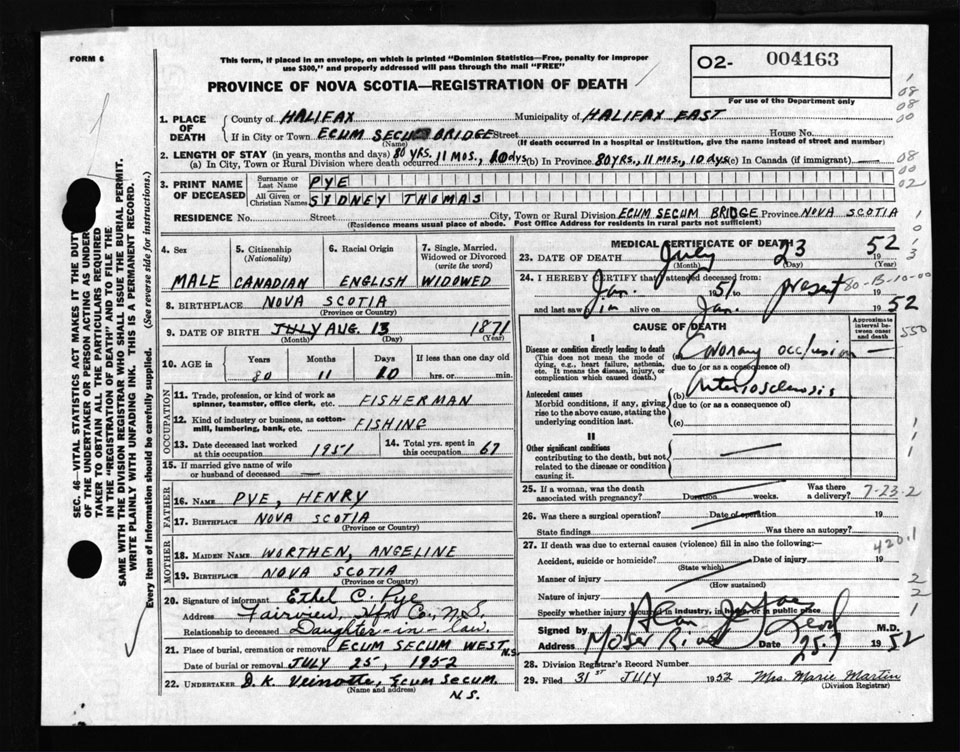 FORM 6
This form, if placed in an envelope, on which is printed "Dominion Statistics—Free, penalty for improper
use $300," and properly addressed will pass through the mail "FREE"
PROVINCE OF NOVA SCOTIA—REGISTRATION OF DEATH
O2- 004163
For use of the Department only
1. PLACE OF DEATH
County of HALIFAX Municipality of HALIFAX EAST
If in City or Town ECUM SECUM BRIDGE Street House No.
(Name) (If death occurred in a hospital or institution, give the name instead of street and number)
2. LENGTH OF STAY (in years, months and days) 80 YRS. 11 MOS., 10 dys (b) In Province 80 YRS., 11 MOS., 10 dys (c) In Canada (if immigrant)
(a) In City, Town or Rural Division where death occurred
3. PRINT NAME OF DECEASED
Surname or Last Name PYE
All Given or Christian Names SYDNEY THOMAS
RESIDENCE No. Street City, Town or Rural Division ECUM SECUM BRIDGE Province NOVA SCOTIA
(Residence means usual place of abode. Post Office Address for residents in rural parts not sufficient)
4. Sex MALE
5. Citizenship (Nationality) CANADIAN
6. Racial Origin ENGLISH
7. Single, Married, Widowed or Divorced (write the word) WIDOWED
8. BIRTHPLACE NOVA SCOTIA
(Province or Country)
9. DATE OF BIRTH JULY AUG. 13 1871
(Month) (Day) (Year)
10. AGE in Years Months Days If less than one day old
80 11 10 hrs. or min.
OCCUPATION
11. Trade, profession, or kind of work as spinner, teamster, office clerk, etc. FISHERMAN
12. Kind of industry or business, as cotton-mill, lumbering, bank, etc. FISHING
13. Date deceased last worked at this occupation 1951
14. Total yrs. spent in this occupation 67
15. If married give name of wife or husband of deceased —
FATHER
16. NAME PYE, HENRY
17. BIRTHPLACE NOVA SCOTIA
(Province or Country)
MOTHER
18. MAIDEN NAME WORTHEN, ANGELINE
19. BIRTHPLACE NOVA SCOTIA
(Province or Country)
20. Signature of informant Ethel C. Pye
Address Fairview, Hfx Co., N.S.
Relationship to deceased Daughter-in-law.
21. Place of burial, cremation or removal ECUM SECUM WEST N.S.
Date of burial or removal JULY 25, 1952
22. UNDERTAKER D.K. Veinotte, ECUM SECUM.
(Name and address) N.S.
MEDICAL CERTIFICATE OF DEATH
23. DATE OF DEATH July 23 1952
(Month) (Day)
24. I HEREBY CERTIFY that I attended deceased from:
Jan. 1951 to present 19
and last saw him alive on Jan. 1952
CAUSE OF DEATH
Approximate interval between onset and death
I
Disease or condition directly leading to death
(This does not mean the mode of dying, e.g., heart failure, asthenia, etc. It means the disease, injury, or complication which caused death.)
(a) Coronary occlusion —
due to (or as a consequence of)
Antecedent causes
Morbid conditions, if any, giving rise to the above cause, stating the underlying condition last.
(b) Arteriosclerosis
due to (or as a consequence of)
(c)
II
Other significant conditions
contributing to the death, but not related to the disease or condition causing it.
25. If a woman, was the death associated with pregnancy? Duration weeks. Was there a delivery?
7-23-2
26. Was there a surgical operation? Date of operation 19
State findings Was there an autopsy?
27. If death was due to external causes (violence) fill in also the following:—
420.1
Accident, suicide or homicide? Date of injury 19
(State which)
Manner of injury
(How sustained)
Nature of injury
Specify whether injury occurred in industry, in home, or in public place
Signed by M.D.
Address Moser River Date 25.7 1952
28. Division Registrar's Record Number
29. Filed 31st JULY 1952 Mrs. Marie Martin
(Division Registrar)
SEC. 46—VITAL STATISTICS ACT MAKES IT THE DUTY
OF THE UNDERTAKER OR PERSON ACTING AS UNDER-
TAKER TO OBTAIN ALL THE PARTICULARS REQUIRED
IN THE "REGISTRATION OF DEATH" AND TO FILE THE
SAME WITH THE DIVISION REGISTRAR WHO SHALL ISSUE THE BURIAL PERMIT.
WRITE PLAINLY WITH UNFADING INK. THIS IS A PERMANENT RECORD.
Every item of information should be carefully supplied. (See reverse side for instructions.)